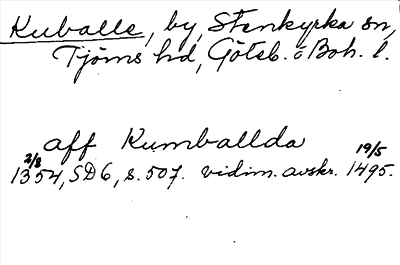 Kuballe, by, Stenkyrka sn,
Tjörns hd, Göteb. o Boh. l.
aff Kumballda
2/8 1354, SD6, s. 507. vidim. avskr. 19/5 1495.